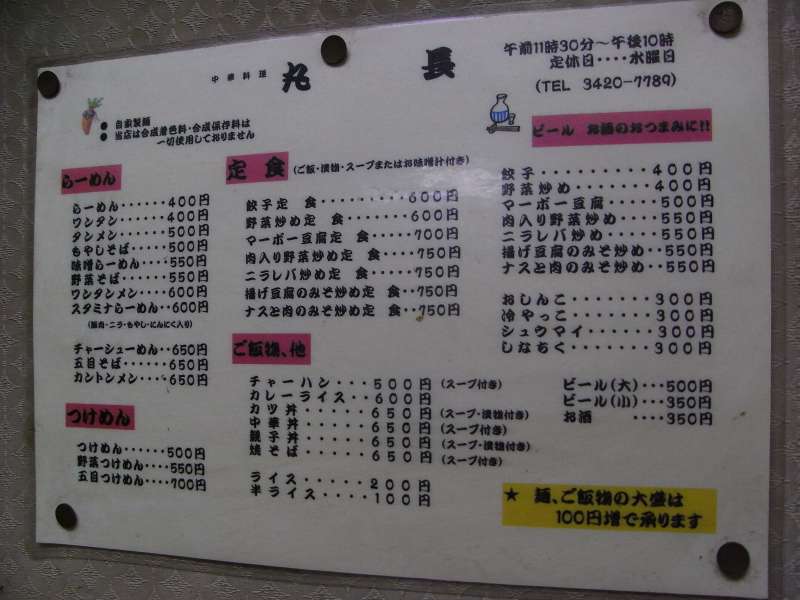 中華料理 丸長
午前11時30分～午後10時
定休日････水曜日
(TEL 3420-7789)
● 自家製麺
● 当店は合成着色料・合成保存料は
一切使用しておりません
らーめん
らーめん･･････400円
ワンタン･･････400円
タンメン･･････500円
もやしそば･････500円
味噌らーめん････550円
野菜そば･･････550円
ワンタンメン････600円
スタミナらーめん･･600円
(豚肉・ニラ・もやし・にんにく入り)
チャーシューめん･･650円
五目そば･･････650円
カントンメン････650円
つけめん
つけめん･･････500円
野菜つけめん････550円
五目つけめん････700円
定 食 (ご飯・漬物・スープまたはお味噌汁付き)
餃子定 食････････600円
野菜炒め定 食･･････600円
マーボー豆腐定 食････700円
肉入り野菜炒め定 食･･･750円
ニラレバ炒め定 食････750円
揚げ豆腐のみそ炒め定 食･･750円
ナスと肉のみそ炒め定 食･･750円
ご飯物、他
チャーハン･･･500円 (スープ付き)
カレーライス･･600円
カツ丼･････650円 (スープ・漬物付き)
中華丼･････650円 (スープ付き)
親子丼･････650円 (スープ・漬物付き)
焼そば･････650円 (スープ付き)
ライス･････200円
半ライス････100円
ビール お酒のおつまみに!!
餃子････････400円
野菜炒め･･････400円
マーボー豆腐･････500円
肉入り野菜炒め････550円
ニラレバ炒め･････550円
揚げ豆腐のみそ炒め･･550円
ナスと肉のみそ炒め･･550円
おしんこ･･･････300円
冷やっこ･･･････300円
シュウマイ･･････300円
しなちく･･･････300円
ビール(大)･･･500円
ビール(小)･･･350円
お酒 ････350円
★ 麺、ご飯物の大盛は
100円増で承ります